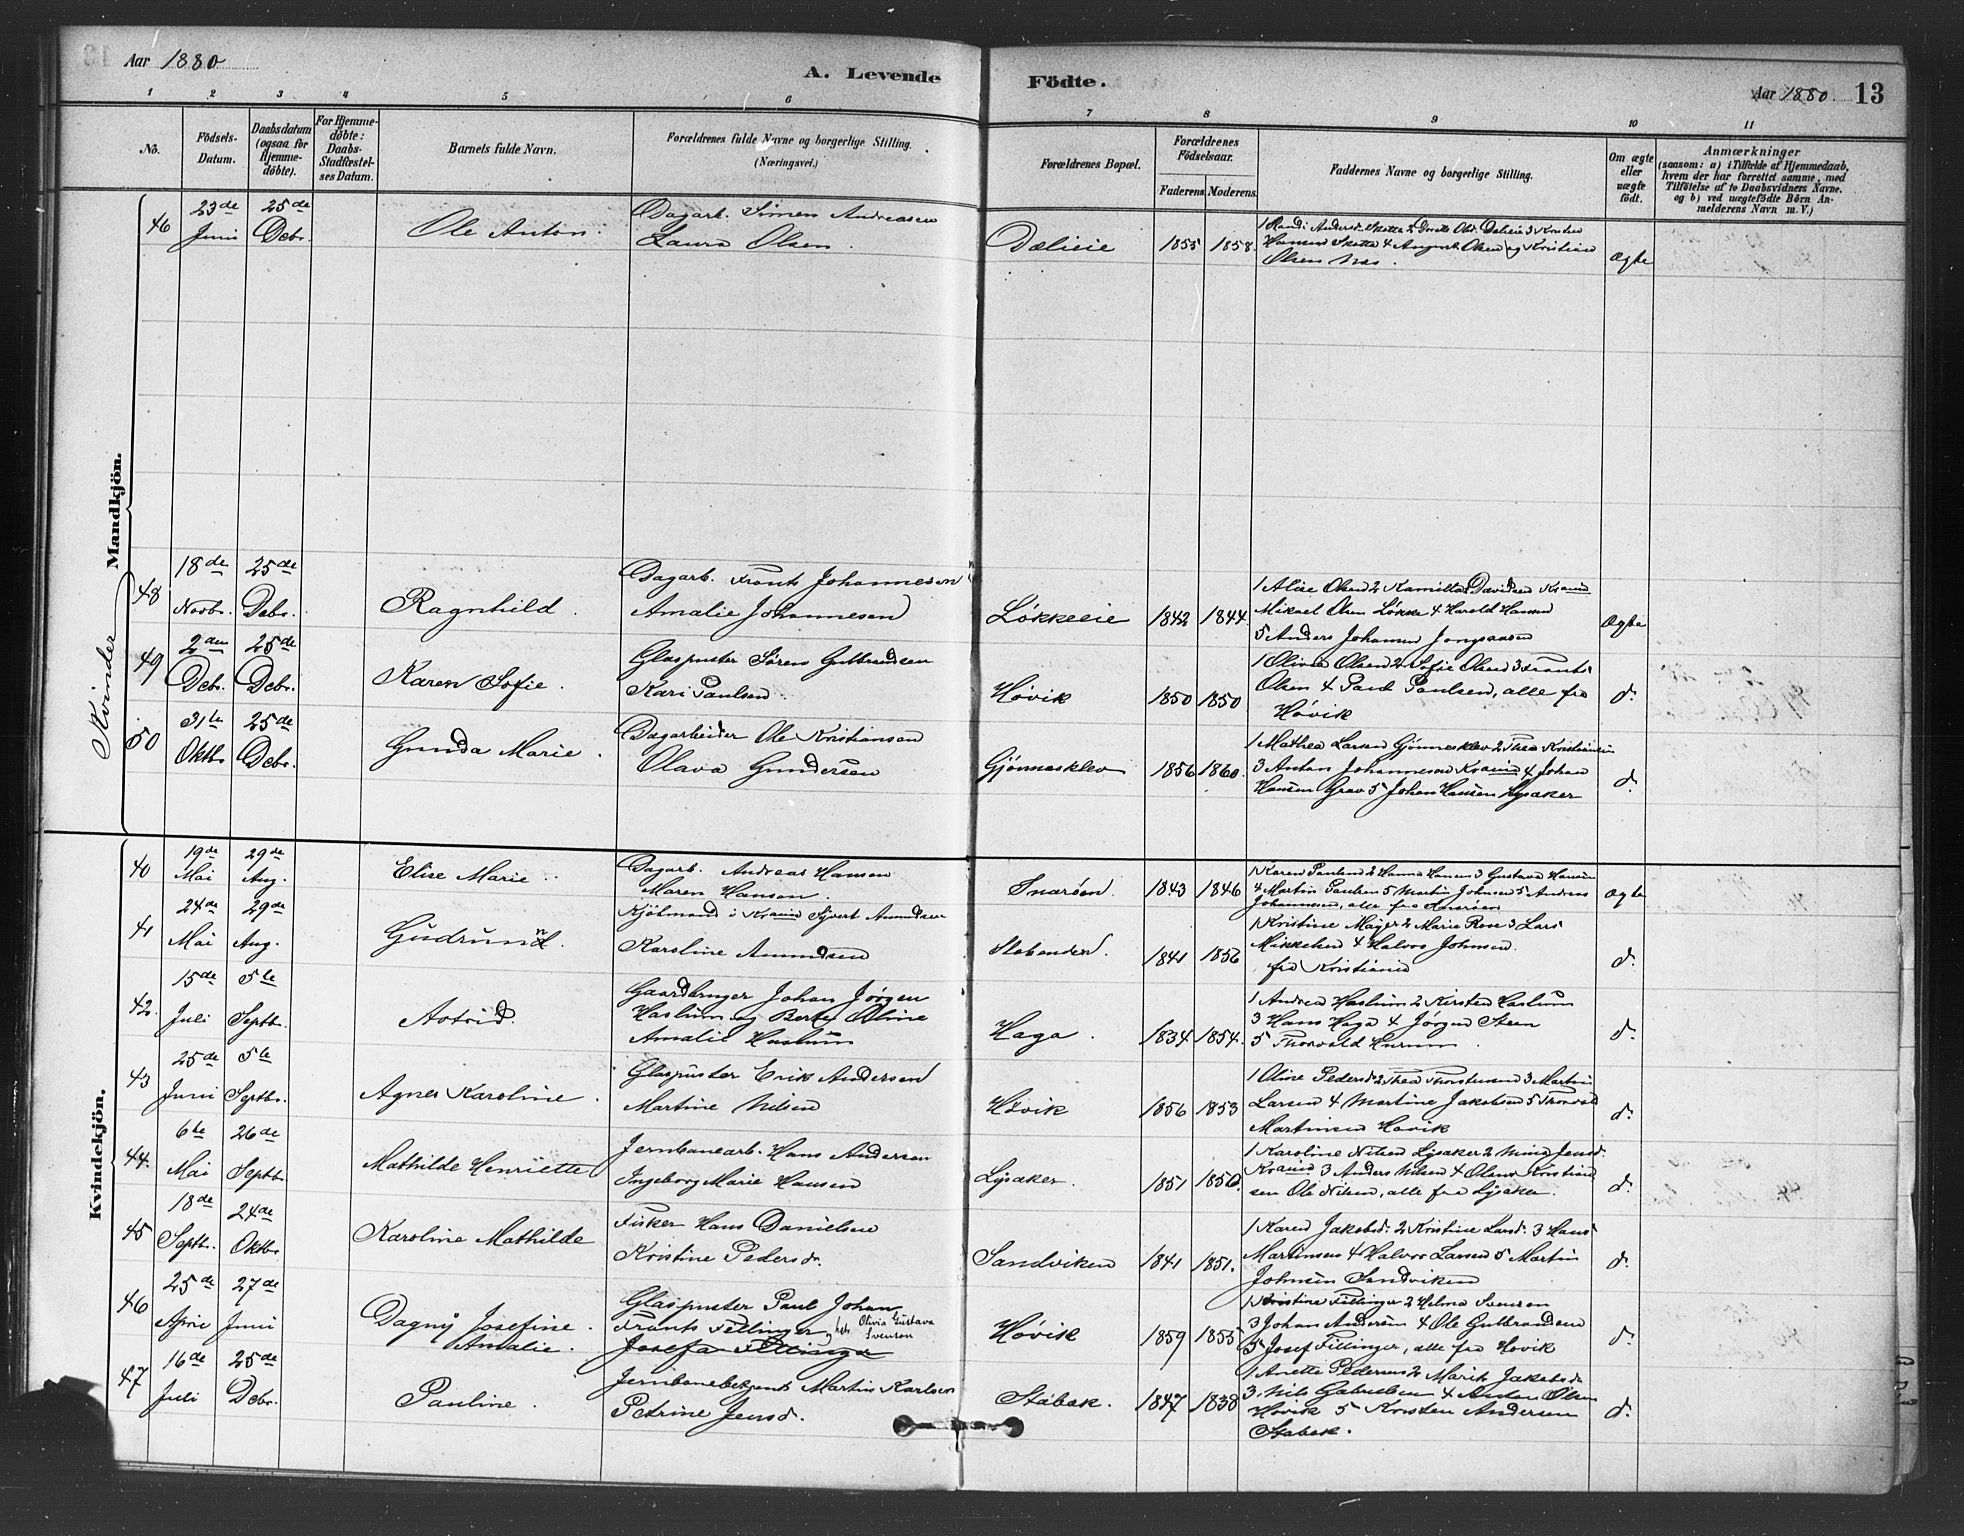 Aar 1880
A. Levende
Födte.
Aar 1880. 13
1 2 3 4 5 6 7 8 9 10 11
No.
Födsels-
Datum.
Daabsdatum
(ogsaa for
Hjemme-
döbte).
For Hjemme-
döbte:
Daabs-
Stadfæstel-
ses Datum.
Barnets fulde Navn.
Forældrenes fulde Navne og borgerlige Stilling.
(Næringsvei.)
Forældrenes Bopæl.
Forældrenes
Födselsaar.
Faderens. Moderens.
Faddernes Navne og borgerlige Stilling.
Om ægte
eller
uægte
født.
Anmærkninger
(saasom: a) i Tilfælde af Hjemmedaab,
hvem der har forrettet samme, med
Tilföielse af to Daabsvidners Navne.
og b) ved uægtefödte Börn An-
melderens Navn m. V.)
Mandkjön.
46 23de Juni 25de Debr. Ole Anton
Dagarb. Simen Andreasen
Laura Olsen
Dælieie 1855 1858.
Hansen 4 August Olsen og Kristian
Olsen
Ægte
Kvinder
48 18de Novbr. 25de Debr. Ragnhild.
Dagarb. Frants Johannesen
Amalie Johannesen
Løkkeeie 1842 1844
1 Alise Olsen 2 Kamilla Davidsen
Mikael Olsen Løkke 4 Harald Hansen
5 Anders Johansen Jongsaasen
Ægte
49 2den Debr. 25de Debr. Karen Sofie.
Glaspuster Søren Gulbrandsen
Kari Paulsen
Høvik 1850 1850
1 Olivia Olsen 2 Sofie Olsen 3 Frants
Olsen 4 Paul Paulsen, alle fra
Høvik
do.
50 31te Oktbr. 25de Debr. Gunda Marie.
Dagarbeider Ole Kristiansen
Olava Gundersen
Gjønnesklev 1856 1860.
1 Mathea Larsen Gjønnesklev 2 Thea Kristiansen
3 Anton Johannesen 4 Johan
Hansen Grav 5 Johan Hansen Lysaker
do.
Kvindekjön.
40 19de Mai 29de Aug. Elise Marie.
Dagarb. Andreas Hansen
Maren Hansen.
Snarøen. 1843 1846
1 Karen Paulsen 2 Hanna Hansen 3 Gustava Hansen
4 Martin Paulsen 5 Martin Johnsen 5 Andreas
Johannesen, alle fra Snarøen
Ægte
41 24de Mai 29de Aug. Gudrund.
n
Kjølmand i Sjvert Amundsen
Karoline Amundsen
Stabenden. 1841 1856
1 Kristine Mäyer 2 Marie Rose 3 Lars
Mikkelsen 4 Halvor Johnsen
fra Kristiania
do.
42. 15de Juli 5te Septbr. Astrid.
Gaardbruger Johan Jørgen
Haslum og Berte Oline
Amalie Haslum
Haga. 1834 1854.
1 Andrea Haslum 2 Kirsten Haslum
3 Hans Haga 4 Jørgen Steen
5 Thorvald Hurum.
do.
43 25de Juni 5te Septbr. Agnes Karoline.
Glaspuster Erik Andersen
Martine Nilsen
Høvik 1856 1853
1 Oline Pedersd. 2 Thea Thorstensen 3 Martin
Larsen 4 Martine Jakobsen 5 Thorvald
Martinsen Høvik
do.
44. 6te Mai 26de Septbr. Mathilde Henriette
Jernbanearb. Hans Andersen
Ingeborg Marie Hansen
Lysaker. 1851 1856.
1 Karoline Nilsen Lysaker 2 Mina Jensd.
3 Anders Nilsen 4 Olaus Kristian
sen Ole Nilsen, alle fra Lysaker.
do.
45 18de Septbr. 24de Oktbr. Karoline Mathilde
Fisker Hans Danielsen
Kristine Pedersd.
Sandviken 1841 1851.
1 Karen Jakobsd. 2 Kristine Larsd. 3 Hans
Martinsen 4 Halvor Larsen 5 Martin
Johnsen Sandviken
do.
46 25de April 27de Juni Dagny Josefine.
Amalie.
Glaspuster Paul Johan
Frants Fellinger
Josefa Fellinger
Olivia Gustava
Svenson
Høvik 1859 1855
1 Kristine Fellinger 2 Helma Svenson
3 Johan Andersen 4 Ole Gulbrandsen
5 Josef Fellinger, alle fra Høvik
do.
47 16de Juli 25de Debr. Pauline.
Jernbanebetjent Martin Karlsen
Petrine Jensd.
Stabæk. 1847 1838
1 Anette Pedersen 2 Marit Jakobsd.
3. Nils Gabrielsen 4 Anton Olsen
Høvik 5 Kristen Andersen
Stabæk.
do.